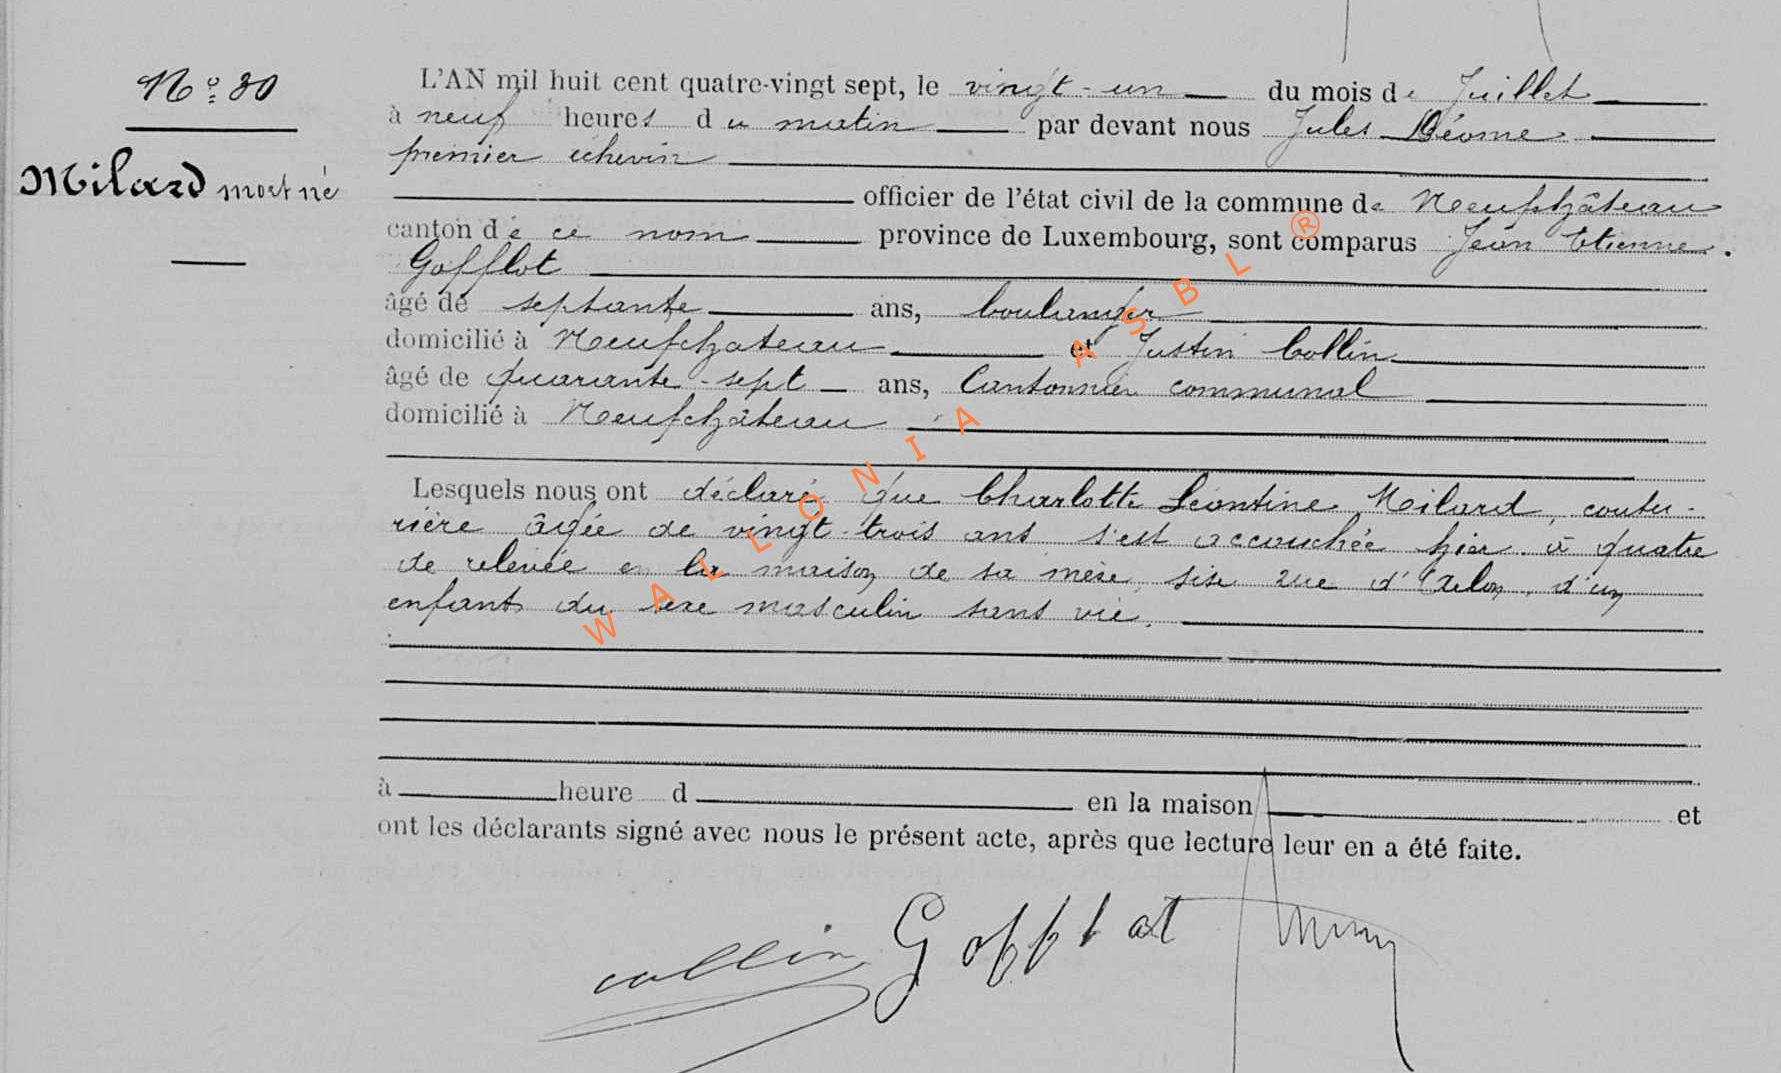 N° 30
Milard mort né
L'AN mil huit cent quatre-vingt sept, le vingt-un du mois de Juillet
à neuf heures du matin par devant nous Jules Déome
premier échevin
officier de l'état civil de la commune de Neufchâteau
canton de ce nom province de Luxembourg, sont comparus Jean Etienne
Gofflot
âgé de septante ans, boulanger
domicilié à Neufchateau et Justin Collin
âgé de quarante-sept ans, Cantonnier communal
domicilié à Neufchâteau
Lesquels nous ont déclaré que Charlotte Léontine Milard, coutu-
rière âgée de vingt-trois ans s'est accouchée hier à quatre
de relevée en la maison de sa mère, sise rue d'Arlon, d'un
enfant du sexe masculin sans vie.
à heure d en la maison et
ont les déclarants signé avec nous le présent acte, après que lecture leur en a été faite.
collin Gofflot
WALLONIA ASBL ®